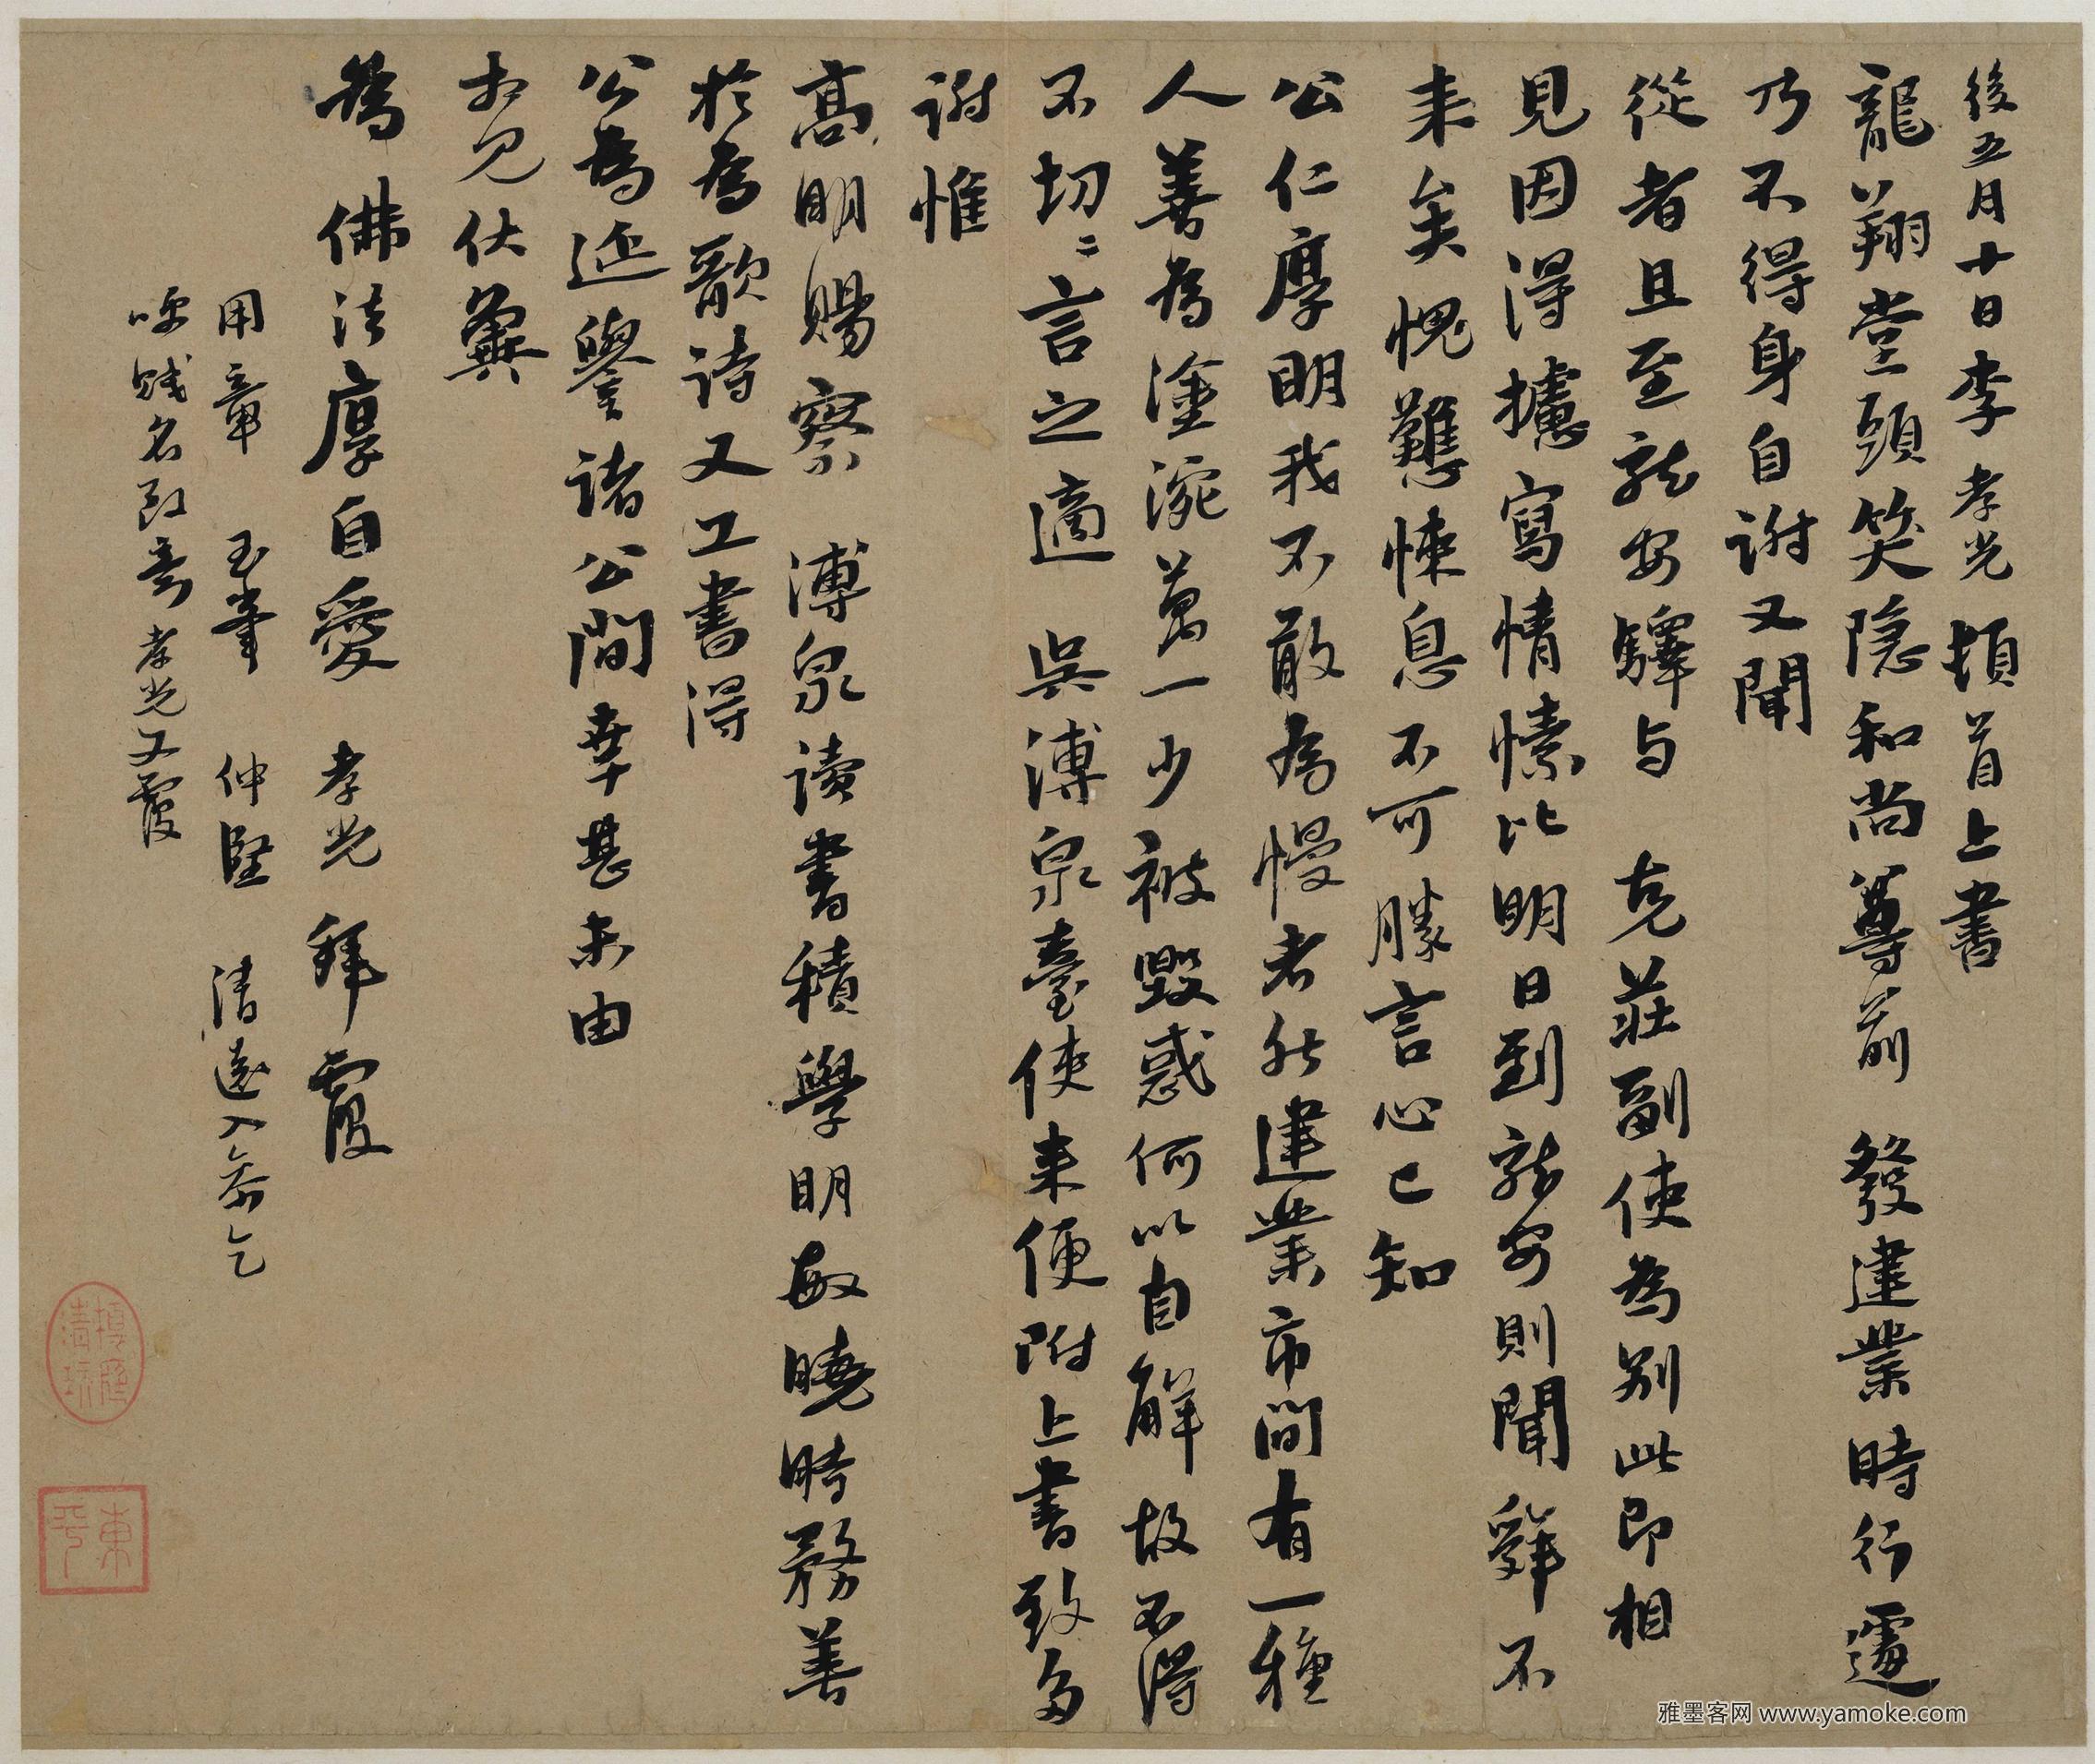 後五月十日李孝光頓首上書
龍翔堂頭笑隱和尚尊前 發建業時行遽
乃不得身自謝又聞
從者且至龍安驛与 克莊副使為別此即相
見因得攄寫情愫比明日到龍安則聞舜不
来矣愧戁悚息不可勝言心已知
公仁厚明我不敢為慢者然建業市間有一種
人善為塗涴萬一少被毀惑何以自解故不得
不切〻言之適 吳溥泉臺使来便附上書致多
謝惟
高明賜察 溥泉讀書積學明敏曉時務善
於為歌詩又工書得
公為延譽諸公間幸甚未由
相見伏冀
為 佛法厚自愛 孝光拜覆
用章 玉峯 仲堅 清遠入乞
賤名致意孝光又覆
項庭清玩
東平
雅墨客网 www.yamoke.com